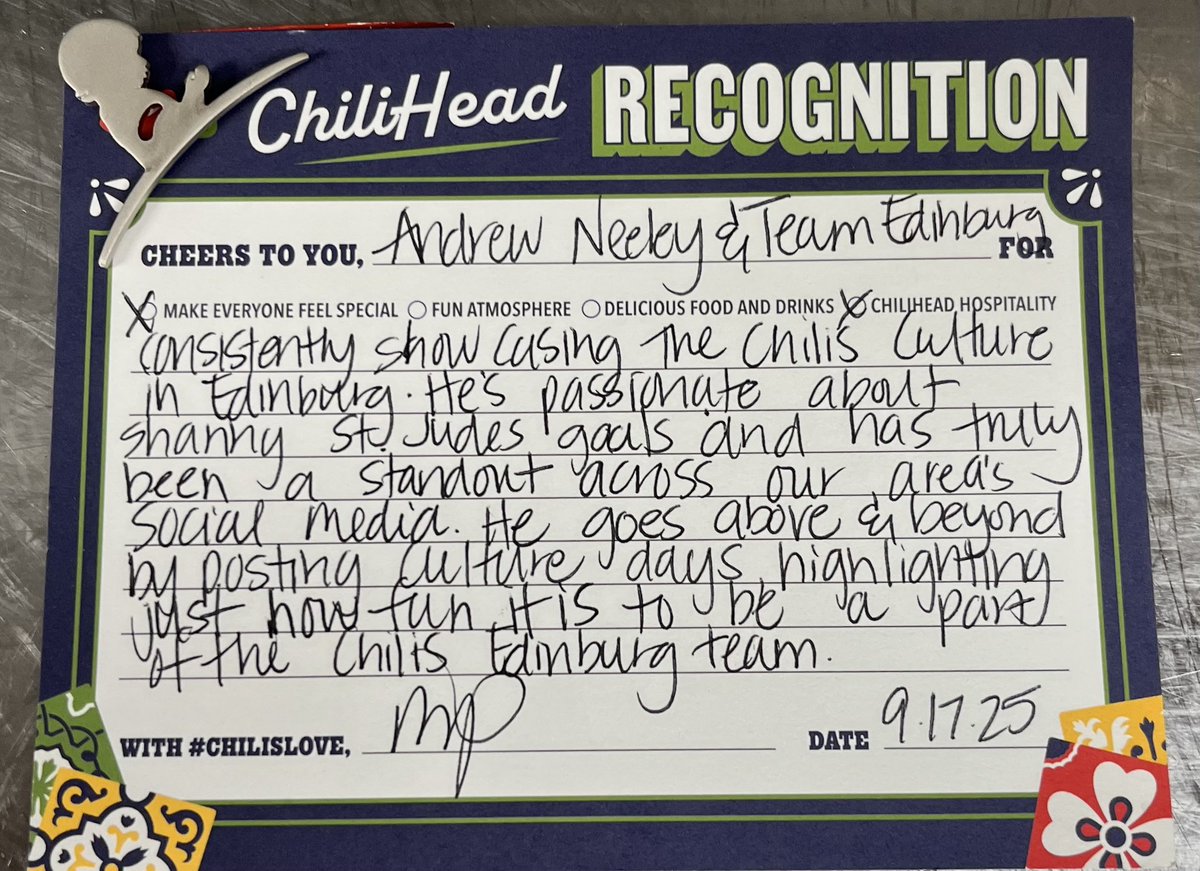 ChiliHead RECOGNITION
CHEERS TO YOU, Andrew Neeley & Team Edinburg FOR
MAKE EVERYONE FEEL SPECIAL FUN ATMOSPHERE DELICIOUS FOOD AND DRINKS CHILIHEAD HOSPITALITY
consistently show casing the Chili's Culture
in Edinburg. He's passionate about
sharing St. Judes goals and has truly
been a standout across our area's
social media. He goes above & beyond
by posting culture days, highlighting
just how fun it is to be a part
of the Chili's Edinburg team.
WITH #CHILISLOVE, MP DATE 9.17.25